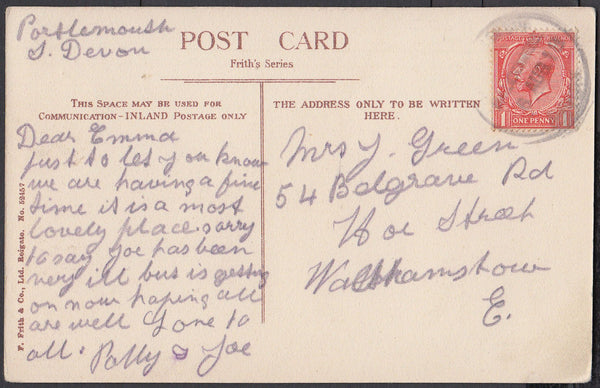 Portlemouth
S. Devon
POST CARD
Frith's Series
THIS SPACE MAY BE USED FOR
COMMUNICATION - INLAND POSTAGE ONLY
Dear Emma
just to let you know
we are having a fine
time it is a most
lovely place. sorry
to say Joe has been
very ill but is getting
on now hoping all
are well Love to
all. Polly & Joe
THE ADDRESS ONLY TO BE WRITTEN
HERE.
Mrs J. Green
54 Belgrave Rd
Hoe Street
Walthamstow
E.
POSTAGE REVENUE
1 ONE PENNY 1
F. Frith & Co., Ltd. Reigate. No. 52457